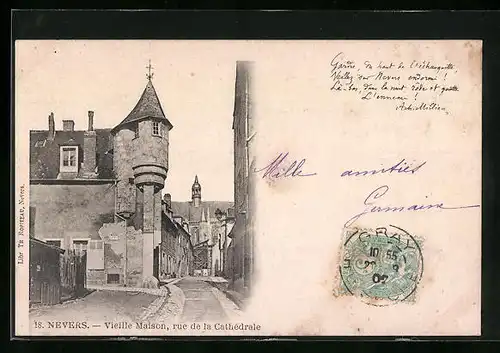 Gardes, du haut de l'échauguette,
Veillez sur Nevers endormi !
Là-bas, dans la nuit rôde et guette
L'ennemi !
Achille Millien
Mille amitiés
Germaine
GRAY
10 55
02
Libr Th Ropiteau, Nevers.
18. NEVERS. — Vieille Maison, rue de la Cathédrale